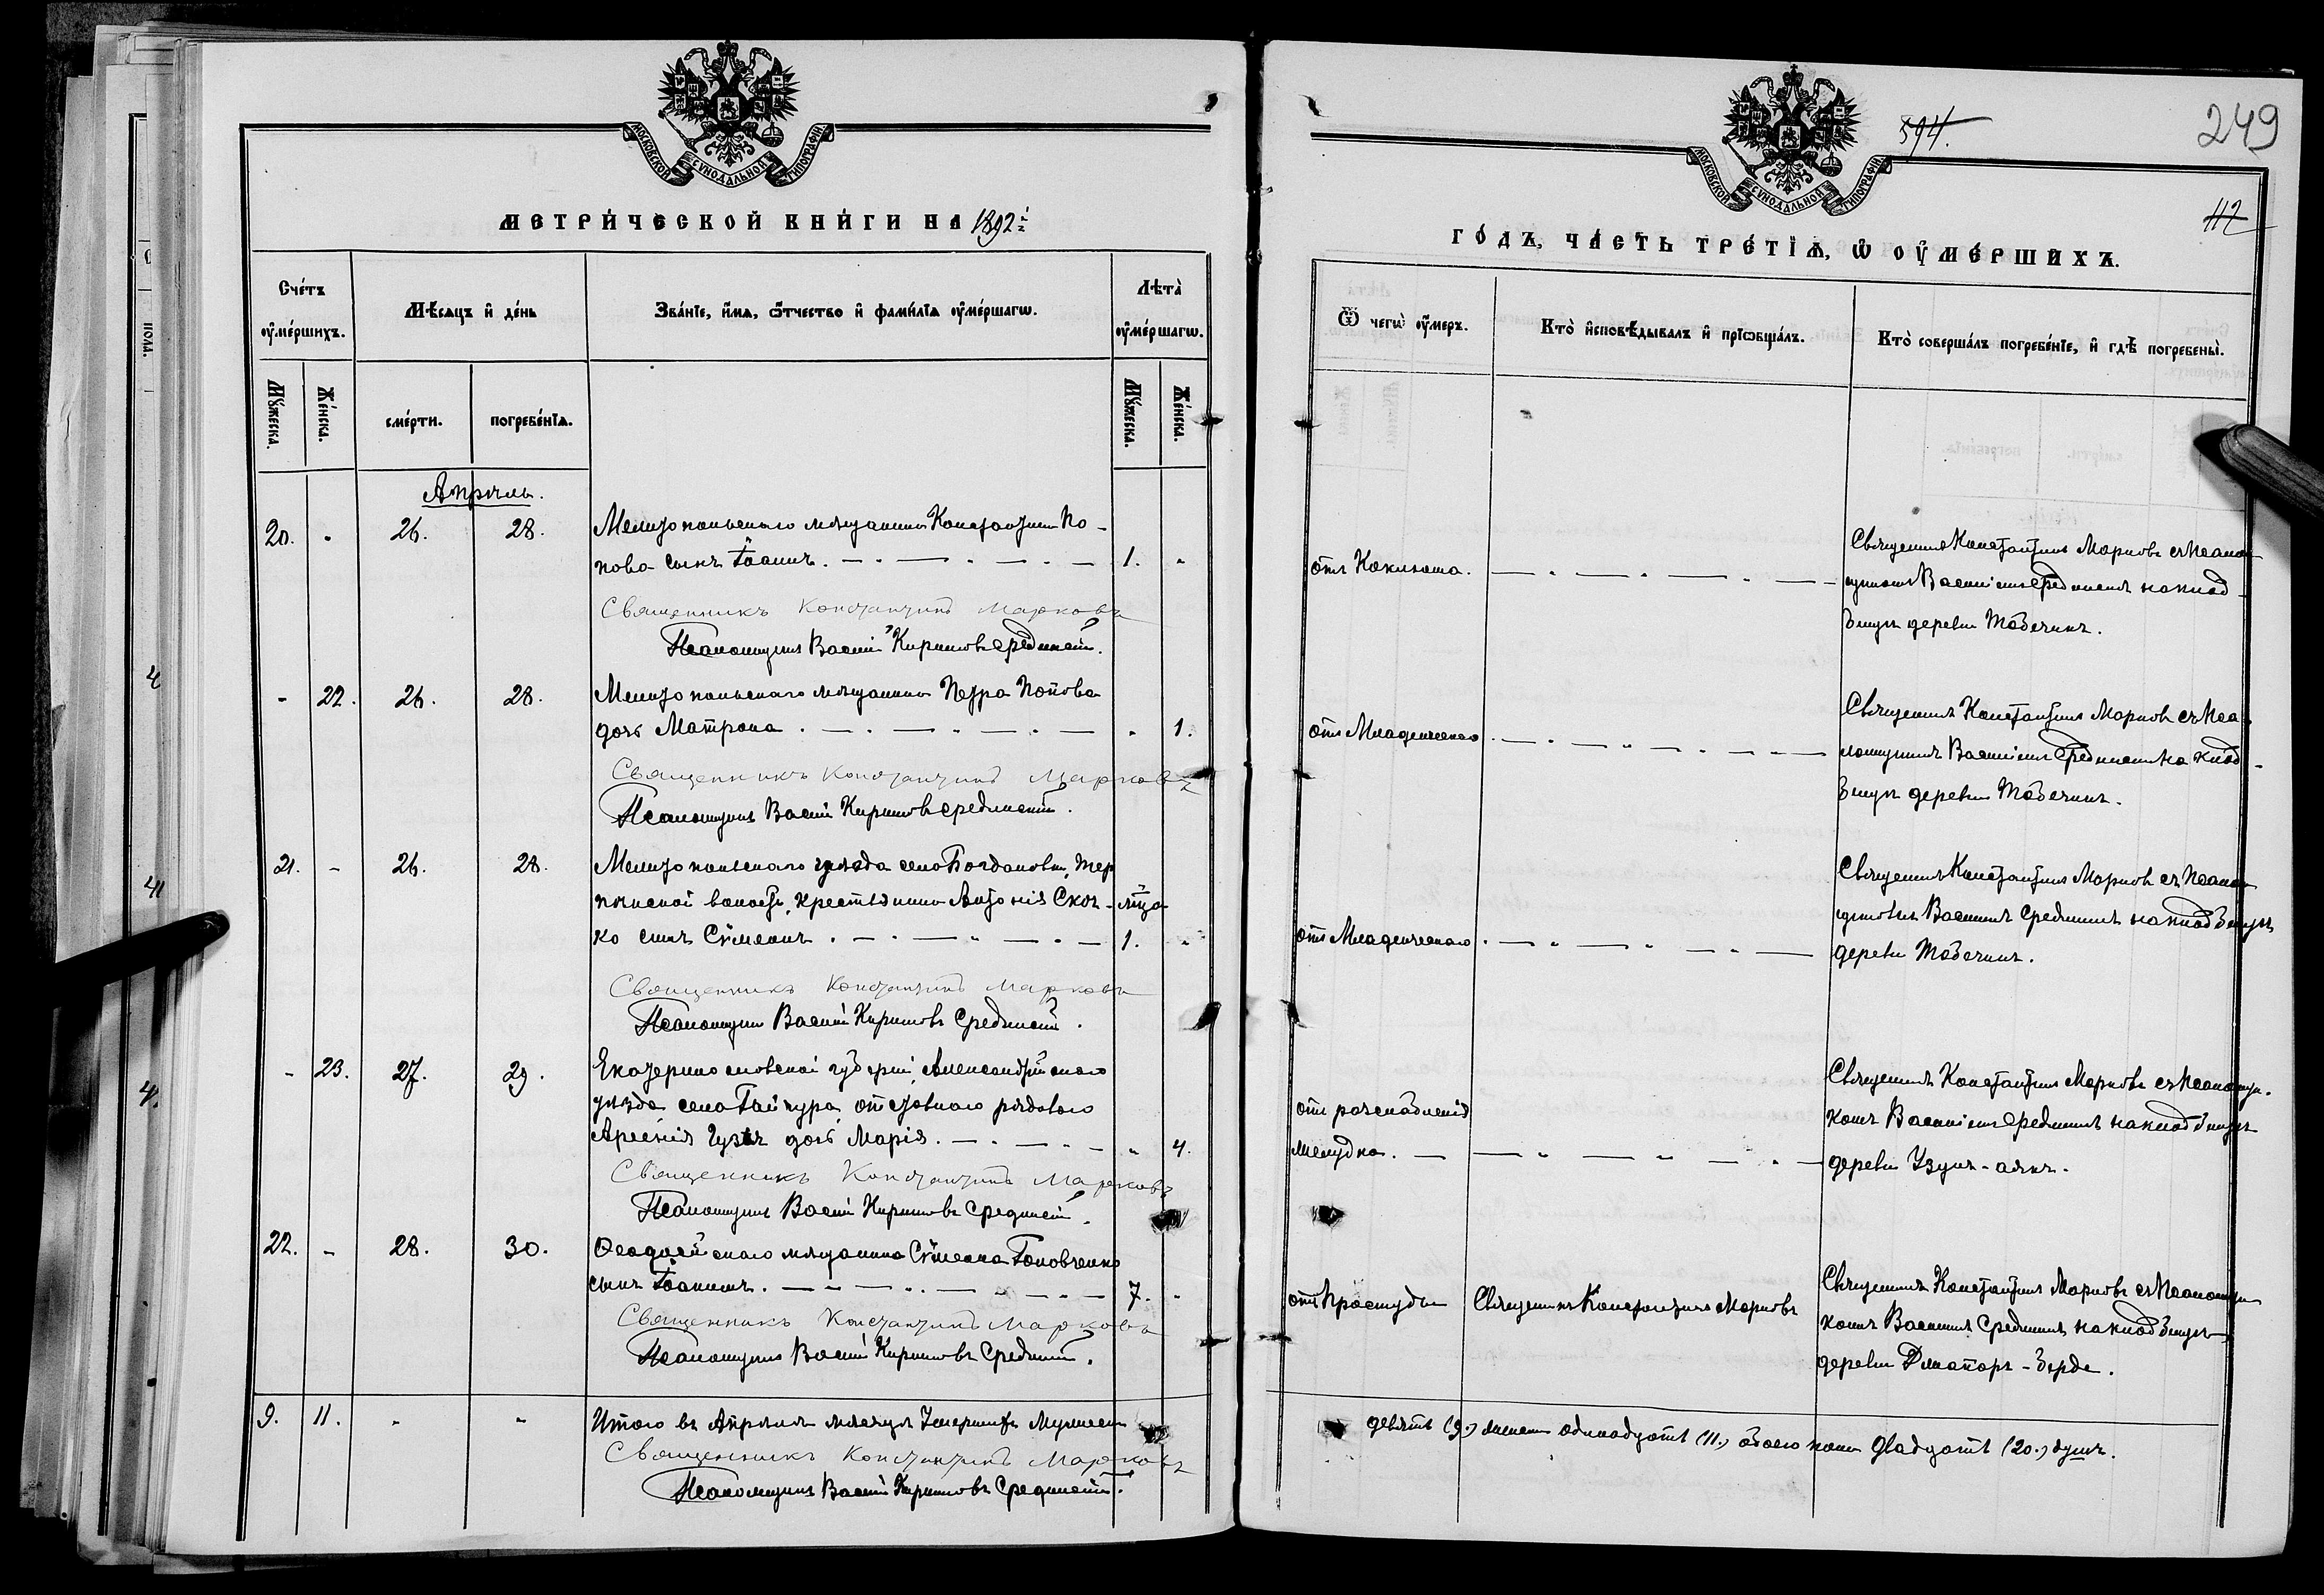 МОСКОВСКОЙ СѴНОДАЛЬНОЙ ТИПОГРАФІИ
МЕТРИ́ЧЕСКОЙ КНИ́ГИ НА 1892й
Сче́тъ ᲂу҆ме́ршихъ.
Мѣ́сяцъ и҆ де́нь
Зва́нїе, и҆́мѧ, ѻ҆́тчество и҆ фами́лїѧ ᲂу҆ме́ршагѡ.
Лѣ́та ᲂу҆ме́ршагѡ.
Мꙋ́жеска.
Же́нска.
сме́рти.
погребе́нїѧ.
Мꙋ́жеска.
Же́нска.
Апрѣль.
20. - 26. 28. Мелитопольскаго мѣщанина Константина По-
пова сынъ Іоаннъ. 1. -
Священникъ Константинъ Марковъ
Псаломщикъ Василій Кирилловъ Срединскій.
- 22. 26. 28. Мелитопольскаго мѣщанина Петра Попова
дочь Матрона. - 1.
Священникъ Константинъ Марковъ
Псаломщикъ Василій Кирилловъ Срединскій.
21. - 26. 28. Мелитопольскаго уѣзда села Богдановки, Тер
пѣнской волости, крестьянина Антонія Скач-
ко сынъ Сѵмеонъ. 1. -
Священникъ Константинъ Марковъ
Псаломщикъ Василій Кирилловъ Срединскій.
- 23. 27. 29. Екатеринославской губерніи, Александрійскаго
уѣзда села Гайчура, отставного рядового
Арсенія Гузь дочь Марія. - 4.
Священникъ Константинъ Марковъ
Псаломщикъ Василій Кирилловъ Срединскій.
22. - 28. 30. Ѳеодосійскаго мѣщанина Сѵмеона Головченко
сынъ Іоаннъ. 7. -
Священникъ Константинъ Марковъ
Псаломщикъ Василій Кирилловъ Срединскій.
9. 11. - - Итого въ Апрѣлѣ мѣсяцѣ Умершихъ Мужеска
Священникъ Константинъ Марковъ
Псаломщикъ Василій Кирилловъ Срединскій.
МОСКОВСКОЙ СѴНОДАЛЬНОЙ ТИПОГРАФІИ
594.
249
112
ГО́ДЪ, ЧА́СТЬ ТРЕ́ТЇѦ, Ѡ҆ ОУ҆МЕ́РШИХЪ.
Ѿ чегѡ̀ ᲂу҆́меръ.
Кто̀ и҆сповѣ́дывалъ и҆ прїѡбща́лъ.
Кто̀ соверша́лъ погребе́нїе, и҆ гдѣ̀ погребены̀.
отъ Коклюша.
Священникъ Константинъ Марковъ съ Псалом
щикомъ Василіемъ Срединскимъ на клад-
бищѣ деревни Тобечикъ.
отъ Младенческаго
Священникъ Константинъ Марковъ съ Пса
ломщикомъ Василіемъ Срединскимъ на клад-
бищѣ деревни Тобечикъ.
отъ Младенческаго
Священникъ Константинъ Марковъ съ Псалом
щикомъ Василіемъ Срединскимъ на кладбищѣ
деревни Тобечикъ.
отъ разслабленія
желудка.
Священникъ Константинъ Марковъ съ Псаломщи-
комъ Василіемъ Срединскимъ на кладбищѣ
деревни Узунъ-аякъ.
отъ Простуды
Священникъ Константинъ Марковъ
Священникъ Константинъ Марковъ съ Псаломщи
комъ Василіемъ Срединскимъ на кладбищѣ
деревни
девять (9.) женска одинадцать (11.) обоего пола двадцать (20.) душъ.